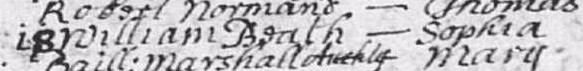 Robert Normand — Thomas
18 William Beath — Sophia
Baill: Marshall Mary